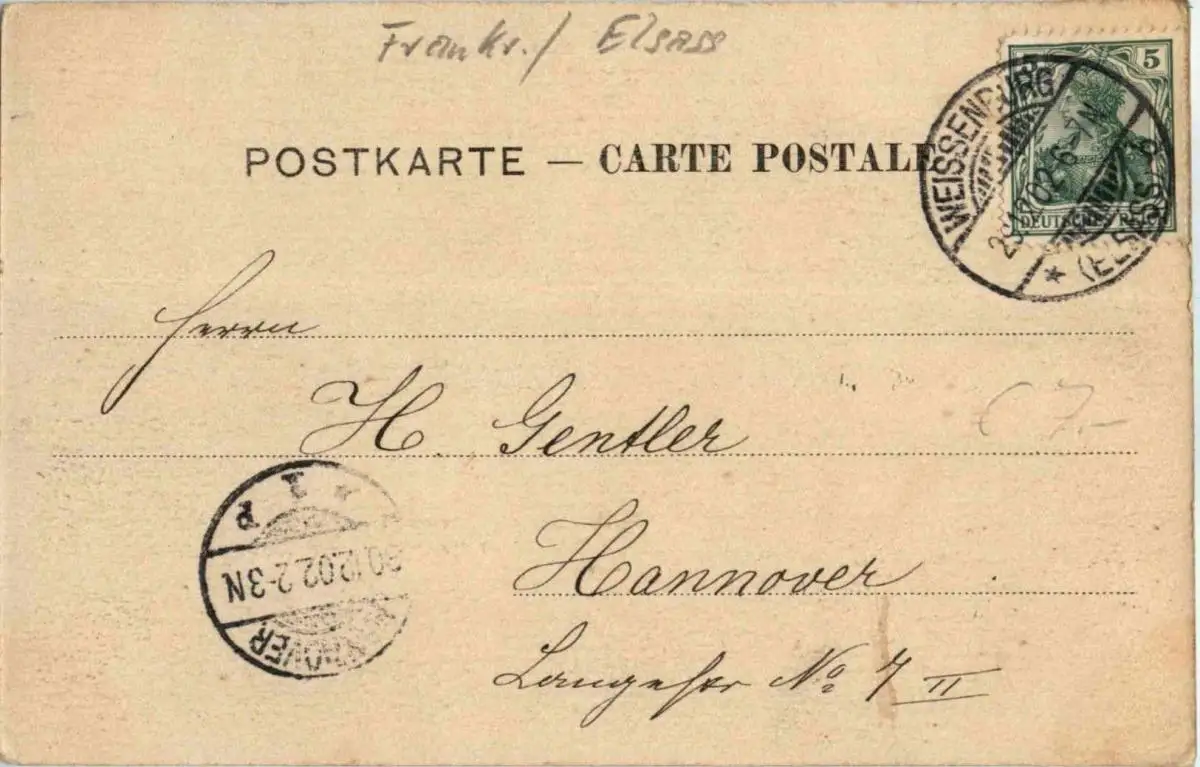 Frankr./ Elsass
POSTKARTE — CARTE POSTALE
5 5
DEUTSCHES REICH
WEISSENBURG
.12.02 6-7N
* (ELSASS) b
Herrn
H. Gentler
7.-
Hannover
Langestr No 7 II
HANNOVER
30.12.02.2-3N
* 1 P